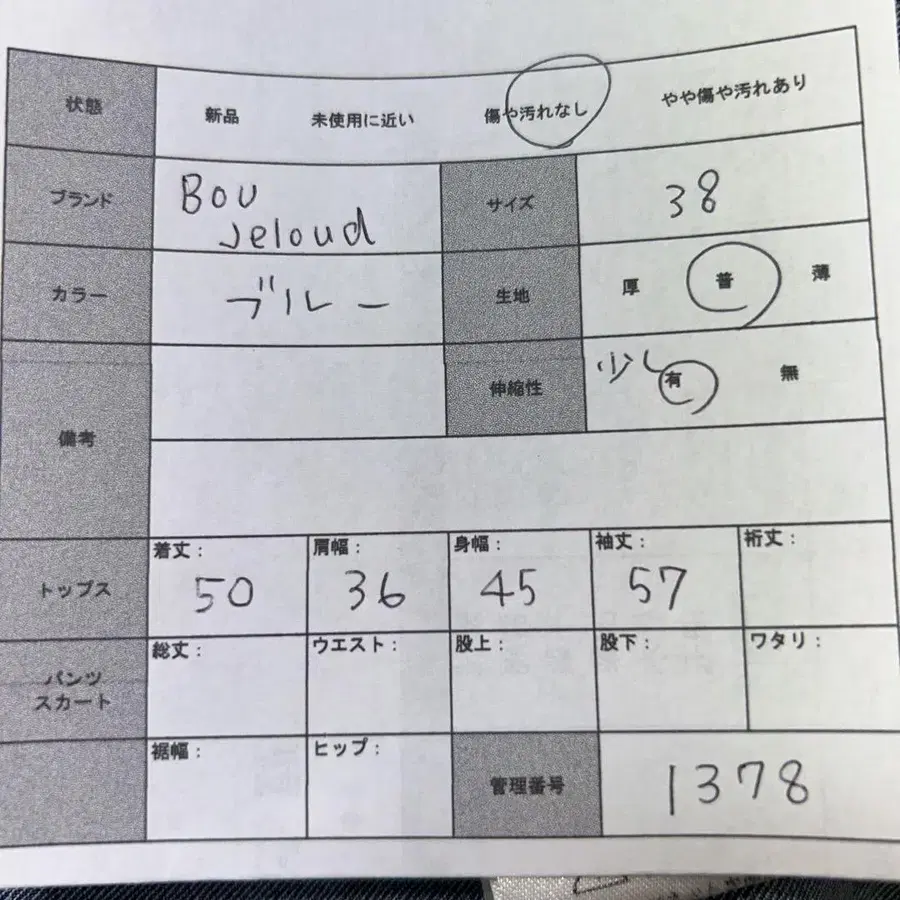 状態 新品 未使用に近い 傷や汚れなし やや傷や汚れあり
ブランド Bou Jeloud サイズ 38
カラー ブルー 生地 厚 普 薄
伸縮性 少し 有 無
備考
トップス 着丈: 50 肩幅: 36 身幅: 45 袖丈: 57 裄丈:
パンツ スカート 総丈: ウエスト: 股上: 股下: ワタリ:
裾幅: ヒップ: 管理番号 1378